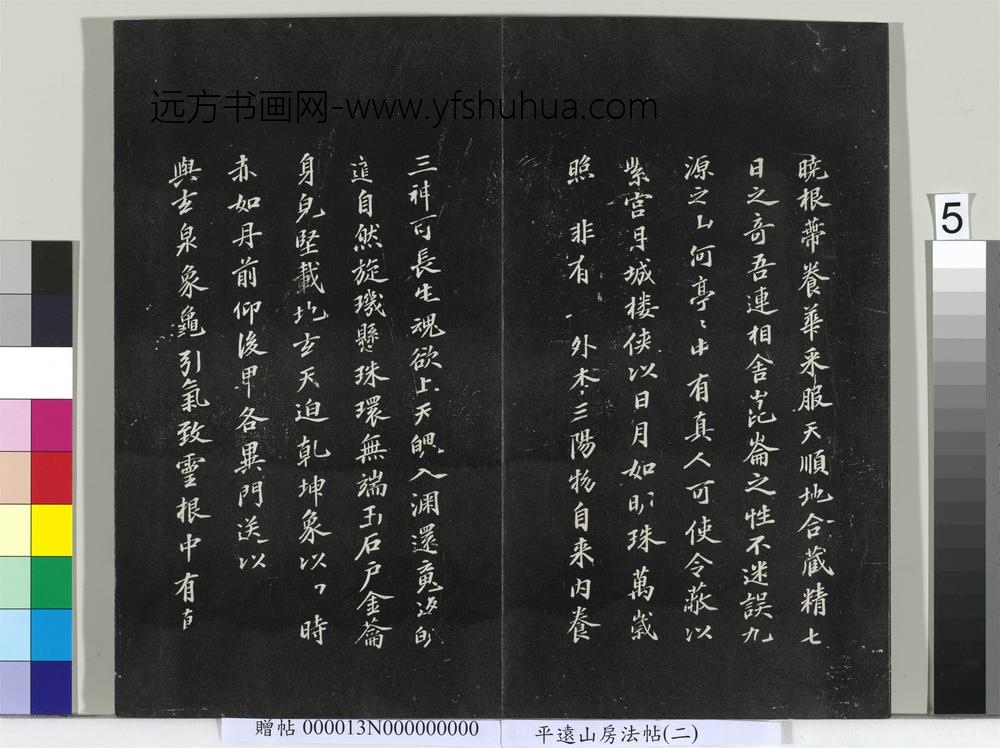 远方书画网-www.yfshuhua.com
曉根蔕養華采服天順地合藏精七
日之奇吾連相舍崑崙之性不迷誤九
源之山何亭〻中有真人可使令蔽以
紫宫丹城楼侠以日月如明珠萬歲
照 非有 外本三陽物自来内養
三神可長生魂欲上天魄入淵還魂
自然旋璣懸珠環無端玉石户金籥
身皃堅載地玄天迫乾坤象以 時
赤如丹前仰後卑各異門送以
與玄泉象龜引氣致靈根中有真
5
贈帖 000013N000000000
平遠山房法帖(二)